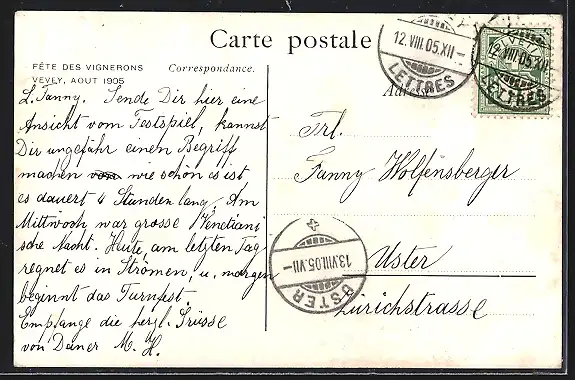 Carte postale
FÊTE DES VIGNERONS
VEVEY, AOUT 1905
Correspondance.
L. Fanny. Sende Dir hier eine
Ansicht vom Festspiel, kannst
Dir ungefähr einen Begriff
machen wie schön es ist
es dauert 4 Stunden lang. Am
Mittwoch war grosse Venetiani
sche Nacht. Heute, am letzten Tag
regnet es in Strömen, u. morgen
beginnt das Turnfest.
Empfange die herzl. Grüsse
von Deiner M. H.
12.VIII.05.XII–
LETTRES
12.VIII.05.XII–
LETTRES
Adresse
Frl.
Fanny Wolfensberger
Uster
Zürichstrasse
13.VIII.05.VII–
USTER